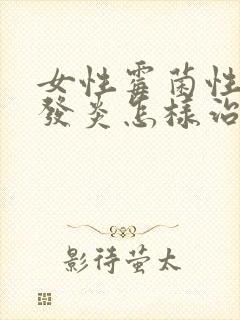 女性霉菌性
發炎怎樣治
影待萤太